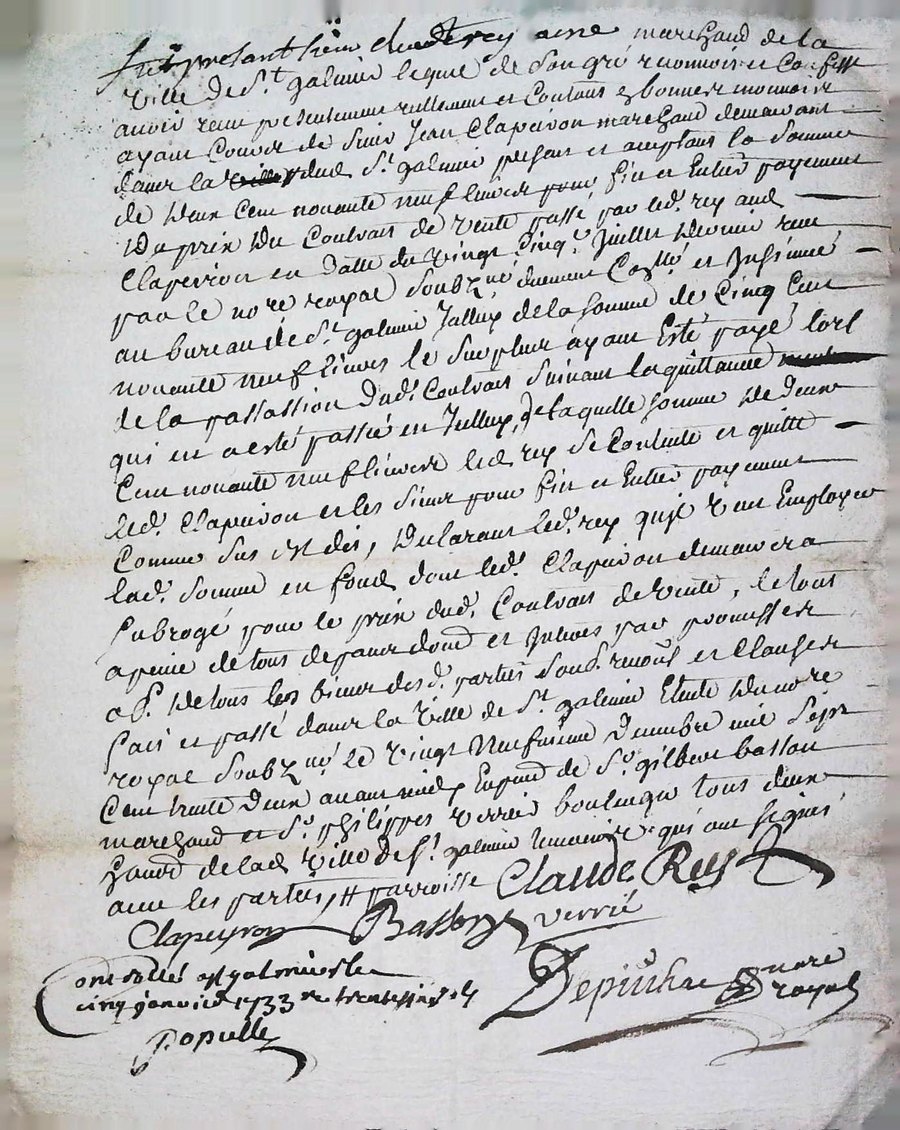 fut present sieur claude rey aine marchand de la
ville de St galmier lequel de son gré reconnois et confesse
avoir receu presentement reellement et contant en bonnes monnoies
ayant cours de sieur Jean Claperon marchand demeurant
dans la ville dud. St galmier present et acceptant la somme
de deux cent nonante neuf livres pour fin et entier payement
du prix du contrat de vente passé par led. rey aud.
Claperon en datte du vingt cinq. juillet dernier receu
par le nore royal soubzné duement Collé et Insinué
au bureau de St galmier de la somme de cinq cent
nonante neuf livres le surplus ayant esté payé lors
de la passassion dud. Contrat suivant la quittance
qui en a esté passée de laquelle somme de deux
Cent nonante neuf livres led. rey se contente et quitte
led. Claperon et les siens pour fin et entier payement
Comme sus est dit, declarant led. rey qu'il veut employer
lad. somme en fond dont led. Claperon demeurera
subrogé pour le prix dud. Contrat de vente, le tout
a peine de tous depans domd et interets par promesses
o. de tous les biens desd. parties et clauses
fait et passé dans la ville de St galmier Etude du nore
royal soubzné le vingt neufvieme decembre mil sept
Cent trente deux avant midy En pnce de Sr gilbert basson
marchand et Sr philippes verrie boulenger tous deux
hants de lad. ville de St galmier qui ont signés
avec les parties, # parroisse Claude Rey
Clapeyron Basson verrié
Controllé a St galmier le
cinq janvier 1733
Populle
nore
royal